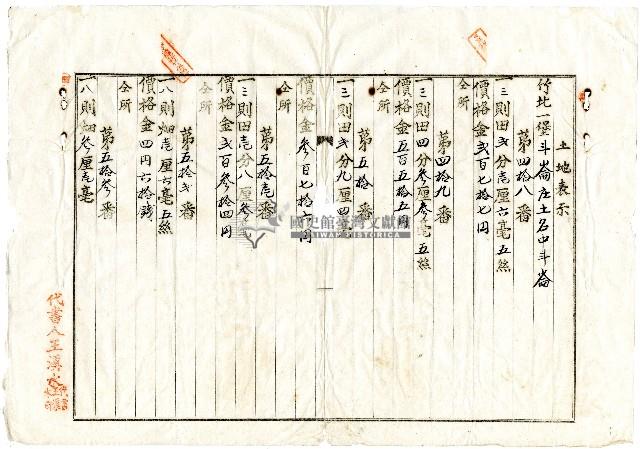 土地表示
竹北一堡斗崙庄土名中斗崙
第四拾八番
一三則田弍分壱厘六毫五絲
價格金弍百七拾七円
仝所
第四拾九番
一三則田四分参厘参毫五絲
價格金五百五拾五円
仝所
第五拾番
一三則田弍分九厘四
價格金参百七拾六円
仝所
第五拾壱番
一三則田壱分八厘参
價格金弍百参拾四円
仝所
第五拾弍番
一八則畑壱厘六毫五絲
價格金四円六拾銭
仝所
第五拾参番
一八則畑参厘壱毫
代書人王溪
國史館臺灣文獻館
TAIWAN HISTORICA